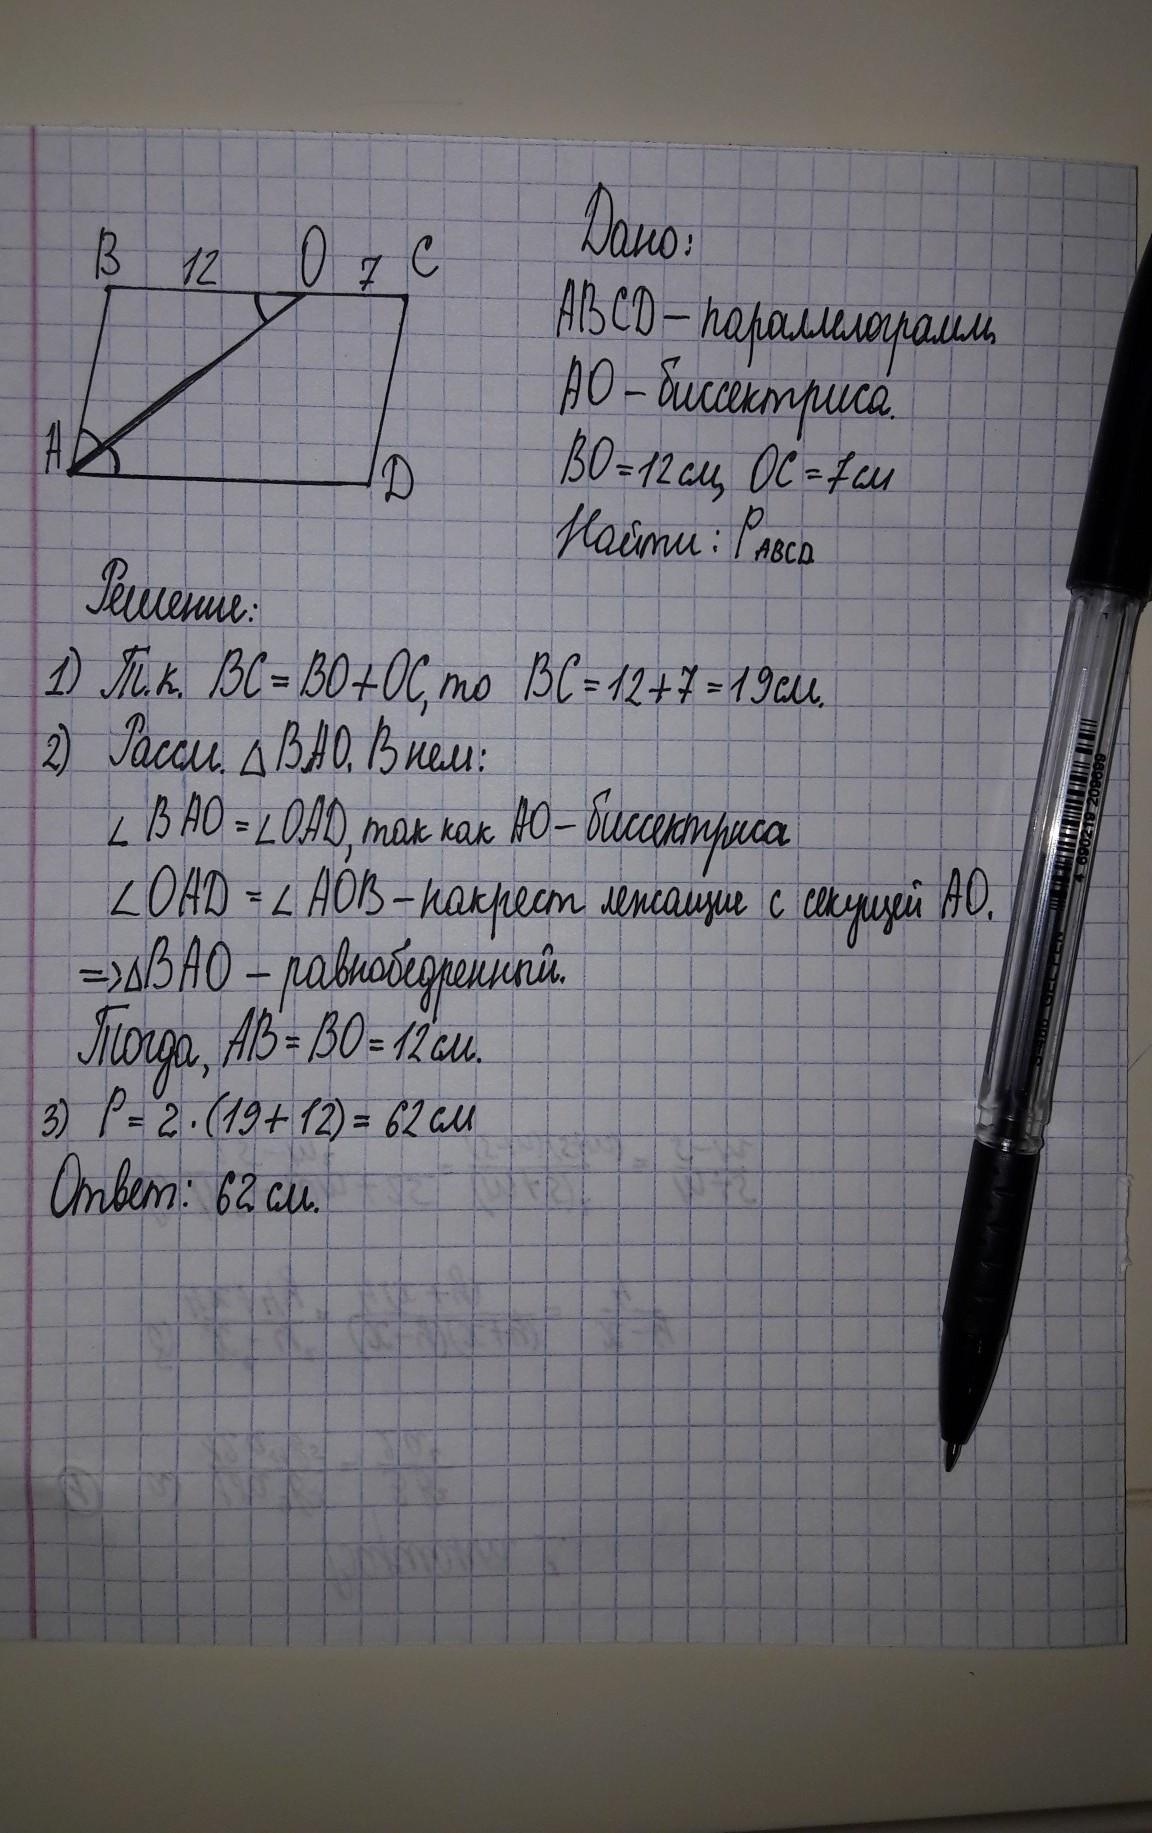 B 12 O 7 C
A
D
Дано:
ABCD – параллелограмм,
AO – биссектриса.
BO = 12 см, OC = 7 см
Найти: P ABCD
Решение:
1) Т.к. BC = BO + OC, то BC = 12 + 7 = 19 см.
2) Рассм. △BAO. В нем:
∠BAO = ∠OAD, так как AO – биссектриса
∠OAD = ∠AOB – накрест лежащие с секущей AO.
=> △BAO – равнобедренный.
Тогда, AB = BO = 12 см.
3) P = 2 · (19 + 12) = 62 см
Ответ: 62 см.
4 690219 209699
GEL PEN